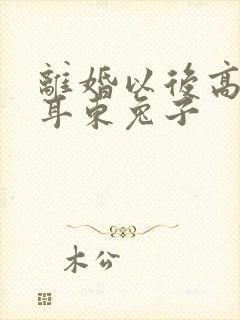 離婚以後高
耳東兔子
木公